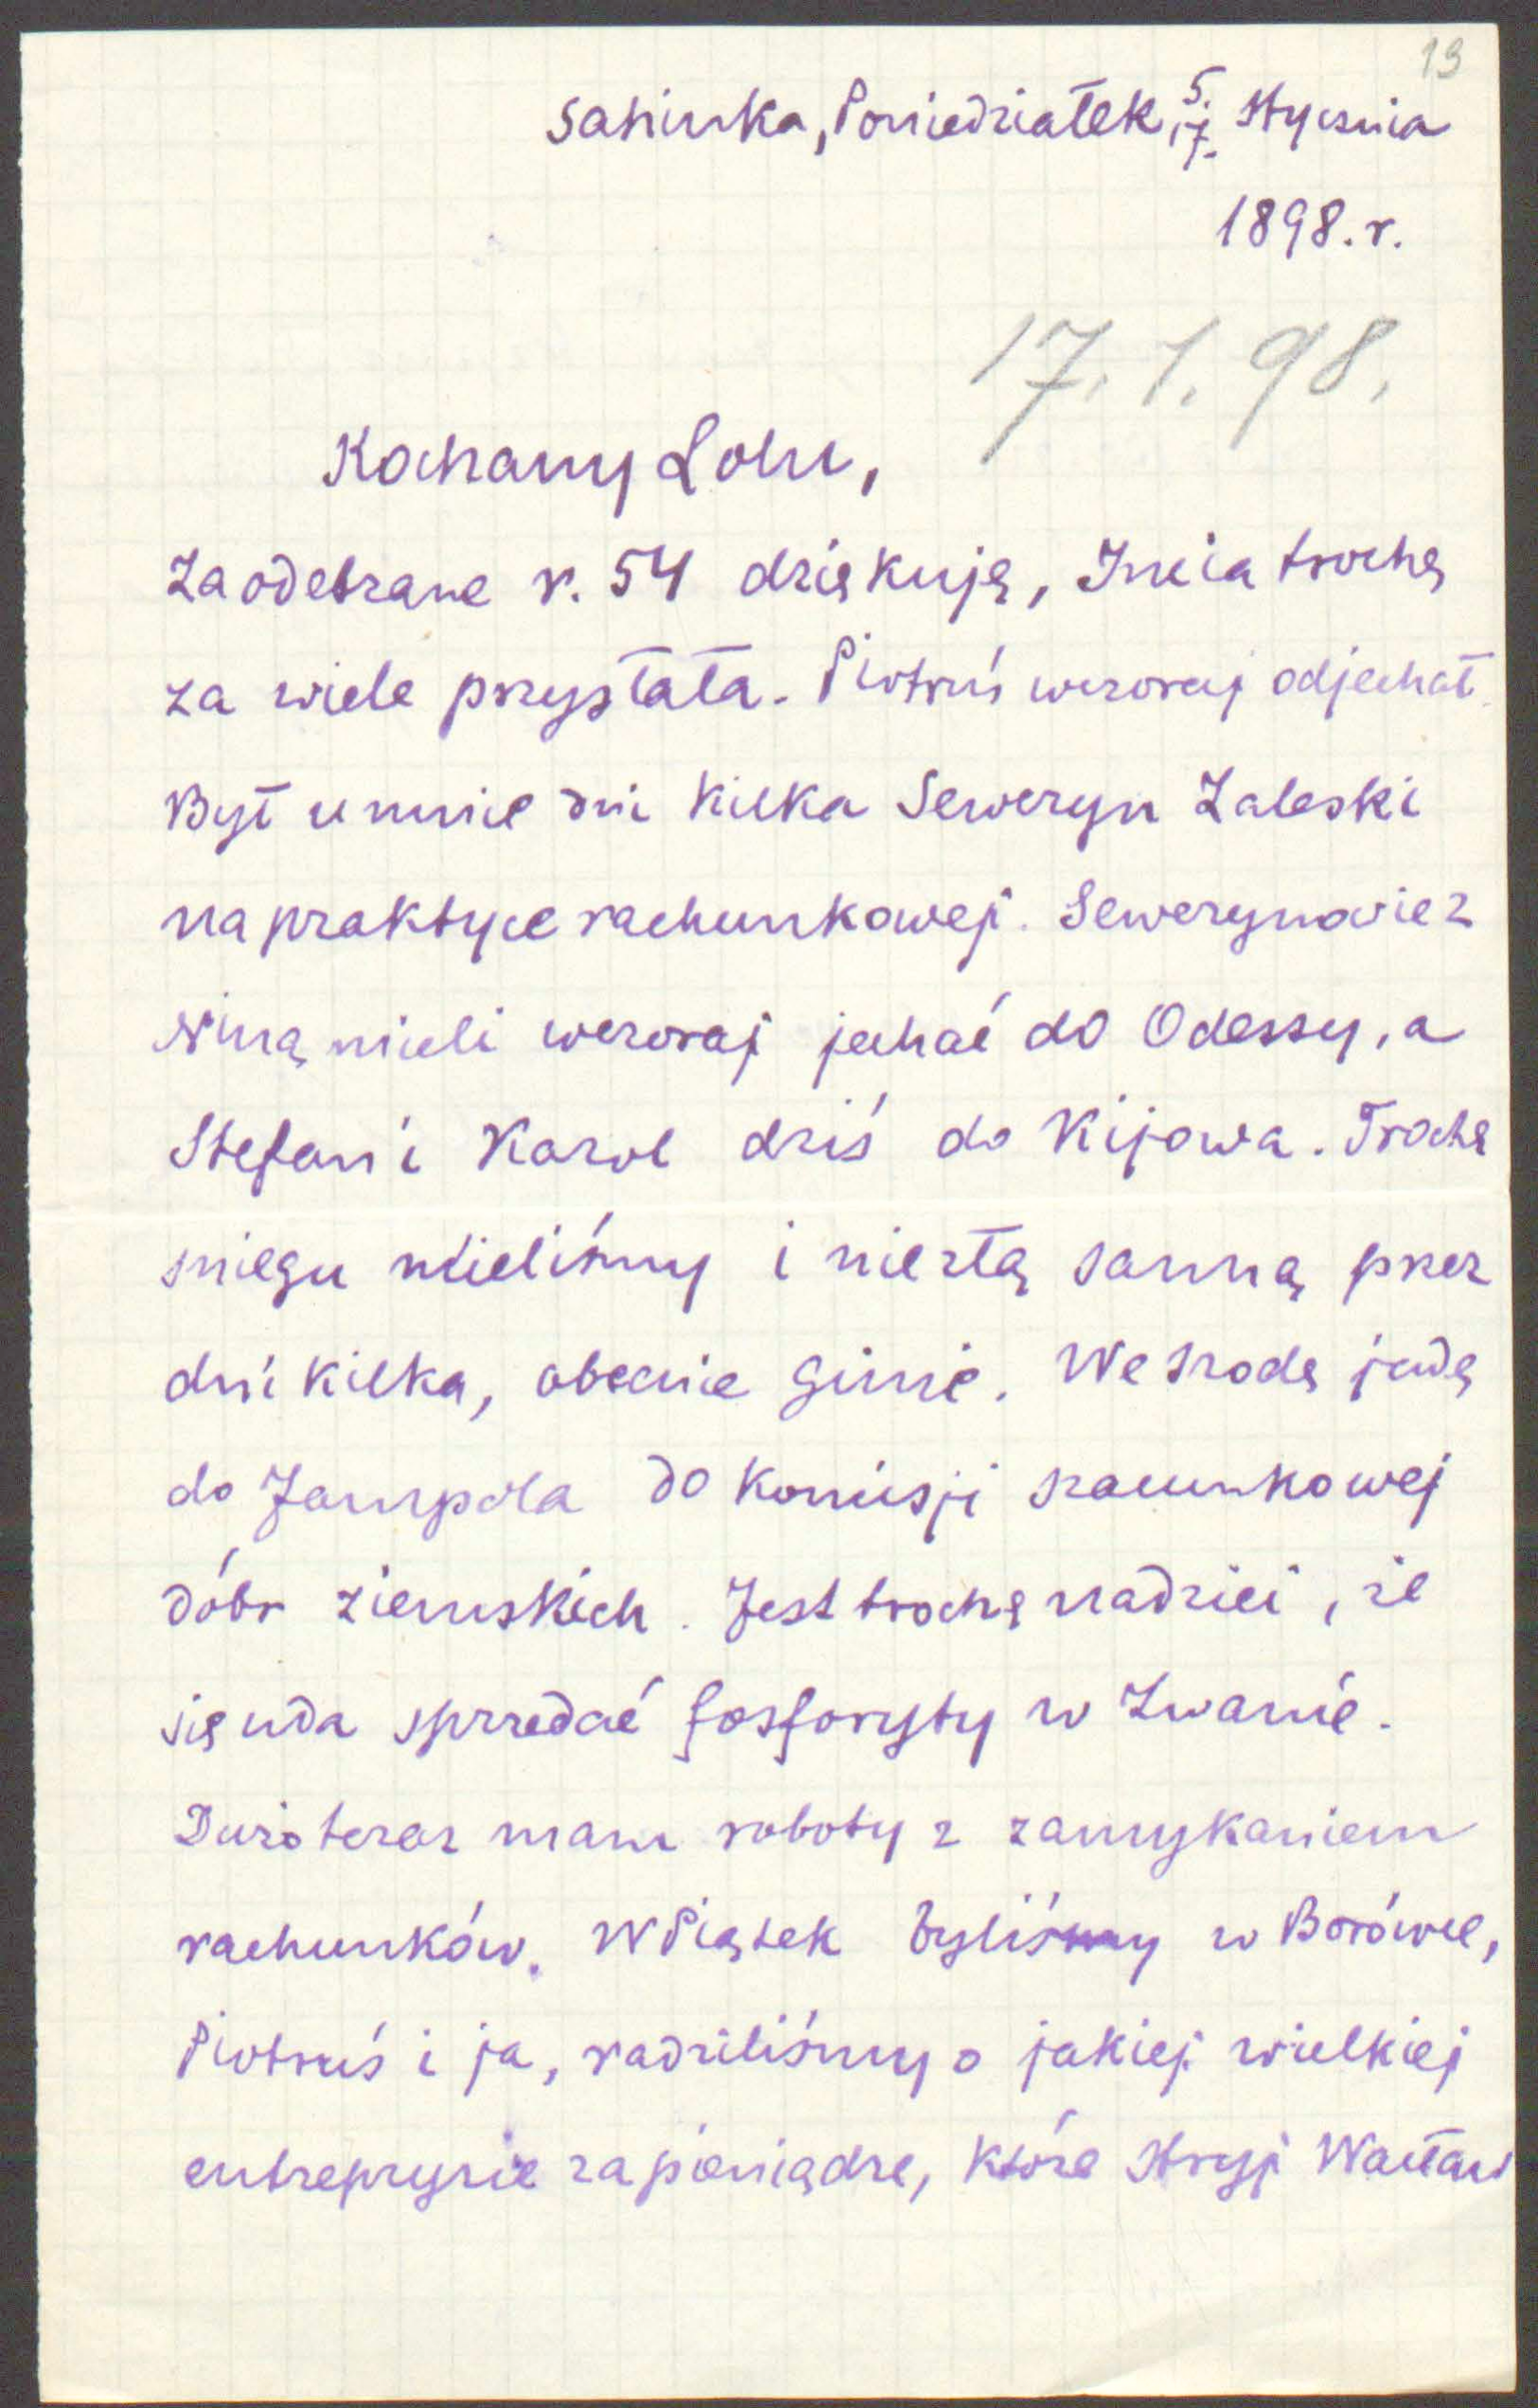 19
Sahinka, Poniedziałek, 5./17. Stycznia
1898. r.
17. 1. 98.
Kochany Lolu,
Za odebrane r. 54 dziękuję, Incia trochę
za wiele przysłała. Piotruś wczoraj odjechał.
Był u mnie dni kilka Seweryn Zaleski
na praktyce rachunkowej. Sewerynowie z
Niną mieli wczoraj jechać do Odessy, a
Stefan i Karol dziś do Kijowa. Trochę
sniegu mieliśmy i niezłą sannę przez
dni kilka, obecnie ginie. We srodę jadę
do Jampola do Komisji szacunkowej
dóbr ziemskich. Jest trochę nadziei, że
się uda sprzedać fosforyty w Żwanie.
Dużo teraz mam roboty z zamykaniem
rachunków. W Piątek byliśmy w Borówce,
Piotruś i ja, radziliśmy o jakiej wielkiej
entrepryzie za pieniądze, które Stryj Wacław